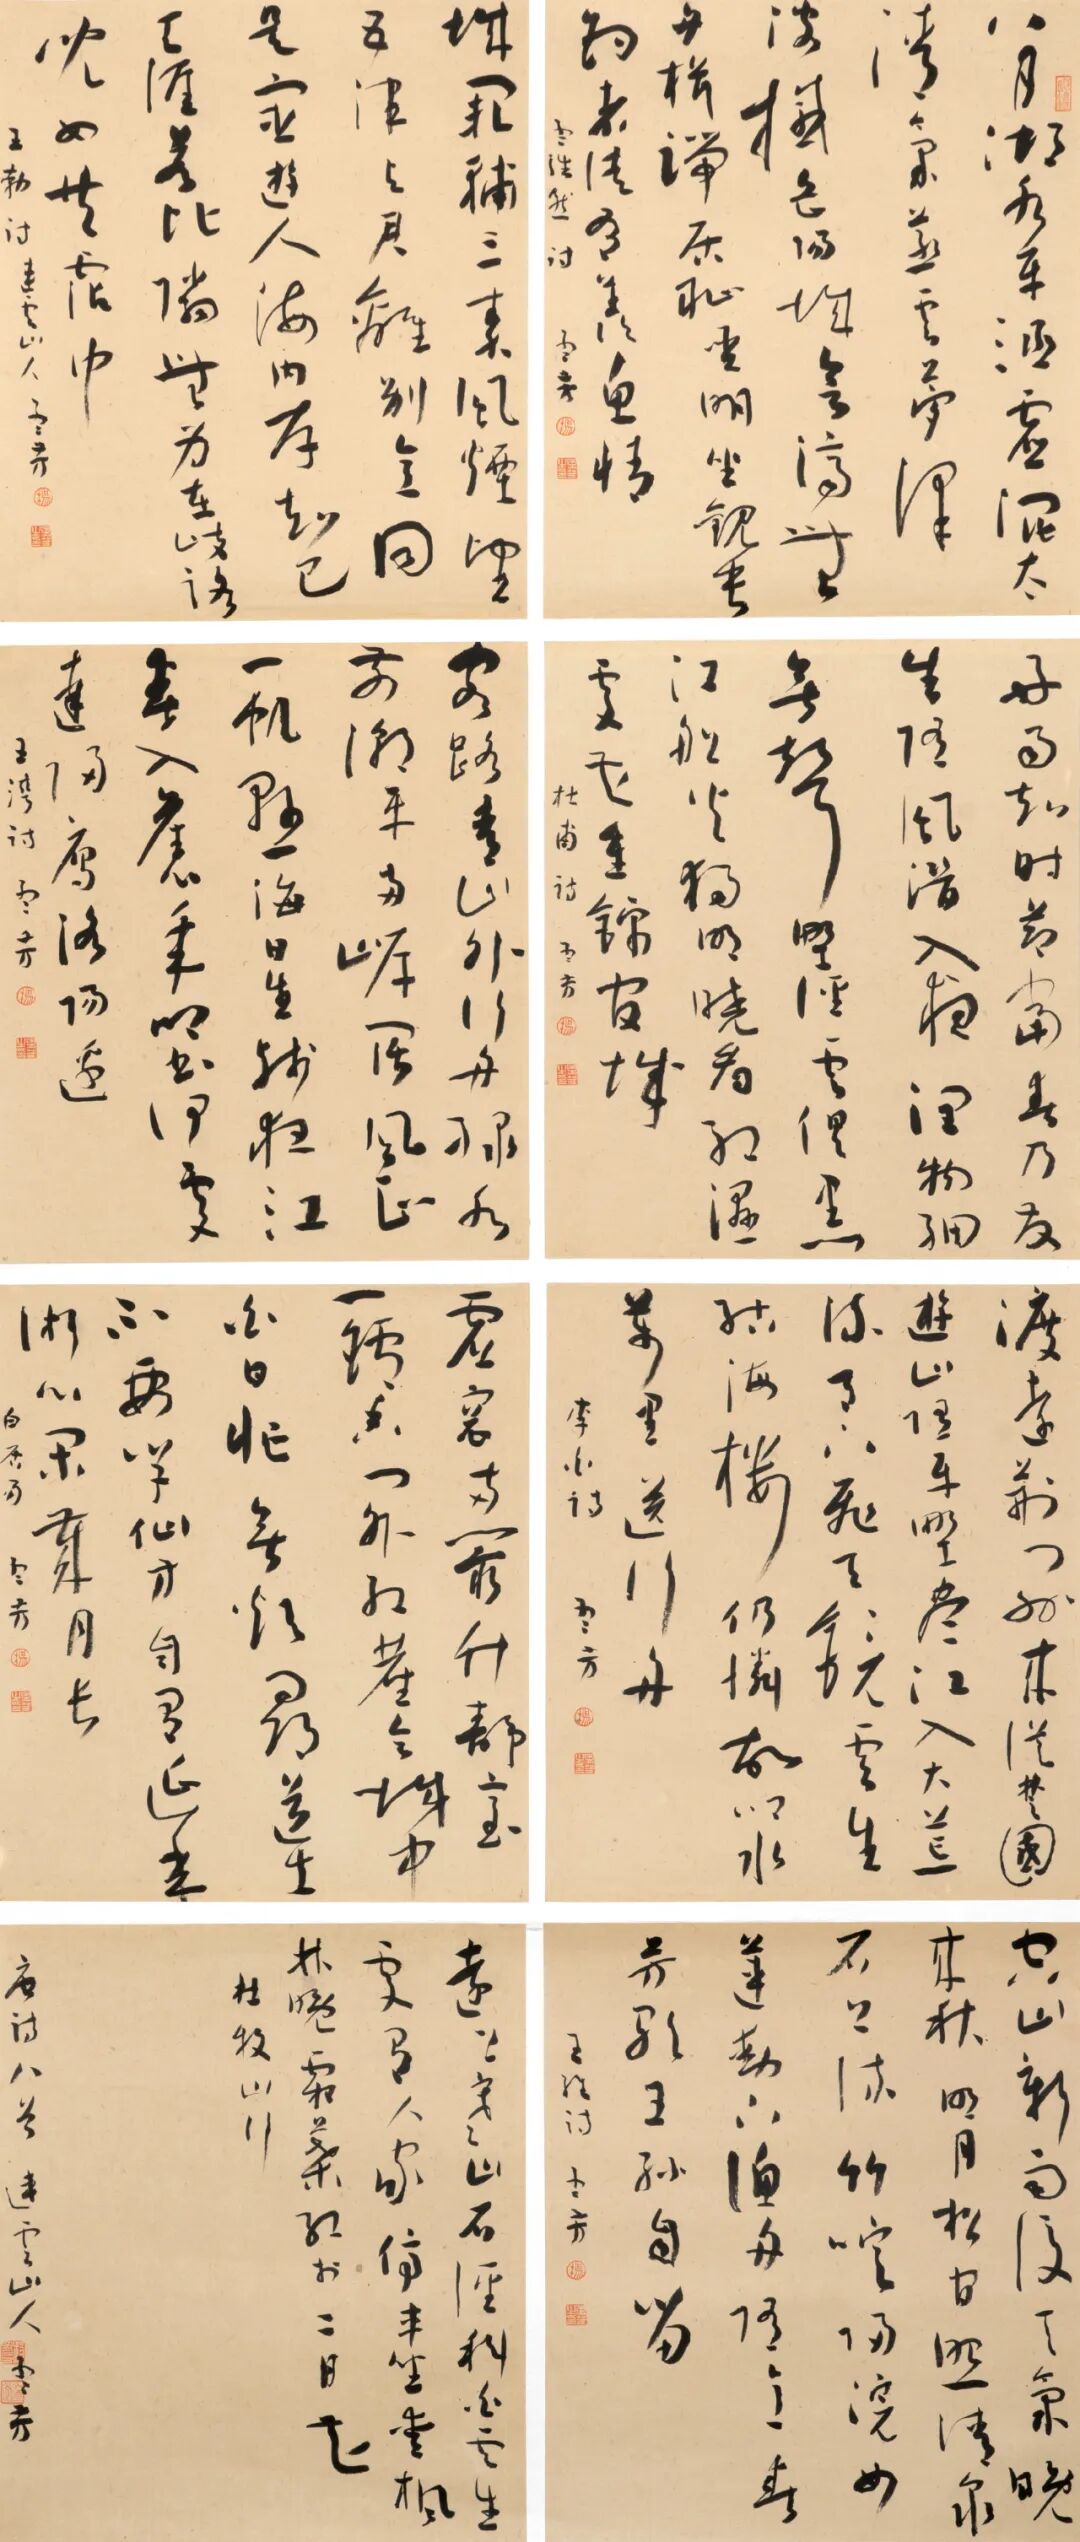 八月湖水平涵虛混太
清氣蒸雲夢澤
波撼岳陽城欲濟無
舟楫端居恥聖明坐觀垂
釣者徒有羨魚情
孟浩然詩
城闕輔三秦風煙望
五津與君離別意同
是宦遊人海內存知己
天涯若比隣無為在歧路
児女共霑巾
王勃詩 連雲山人
好雨知時節當春乃發
生隨風潛入夜潤物細
無聲野徑雲俱黑
江船火獨明曉看紅濕
處花重錦官城
杜甫詩
客路青山外行舟綠水
前潮平兩岸闊風正
一帆懸海日生殘夜江
春入舊年鄉書何處
達歸雁洛陽邊
王灣詩
渡遠荊門外來從楚國
遊山隨平野盡江入大荒
流月下飛天鏡雲生
結海樓仍憐故鄉水
萬里送行舟
李白詩
虛窗兩叢竹靜室
一爐香門外紅塵合城中
白日忙無煩尋道士
不要學仙方自有延年
術心閑歲月長
白居易
空山新雨後天氣晚
來秋明月松間照清泉
石上流竹喧歸浣女
蓮動下漁舟隨意春
芳歇王孫自留
王維詩
遠上寒山石徑斜白雲生
處有人家停車坐愛楓
林晚霜葉紅於二月花
杜牧山行
唐詩八首 連雲山人